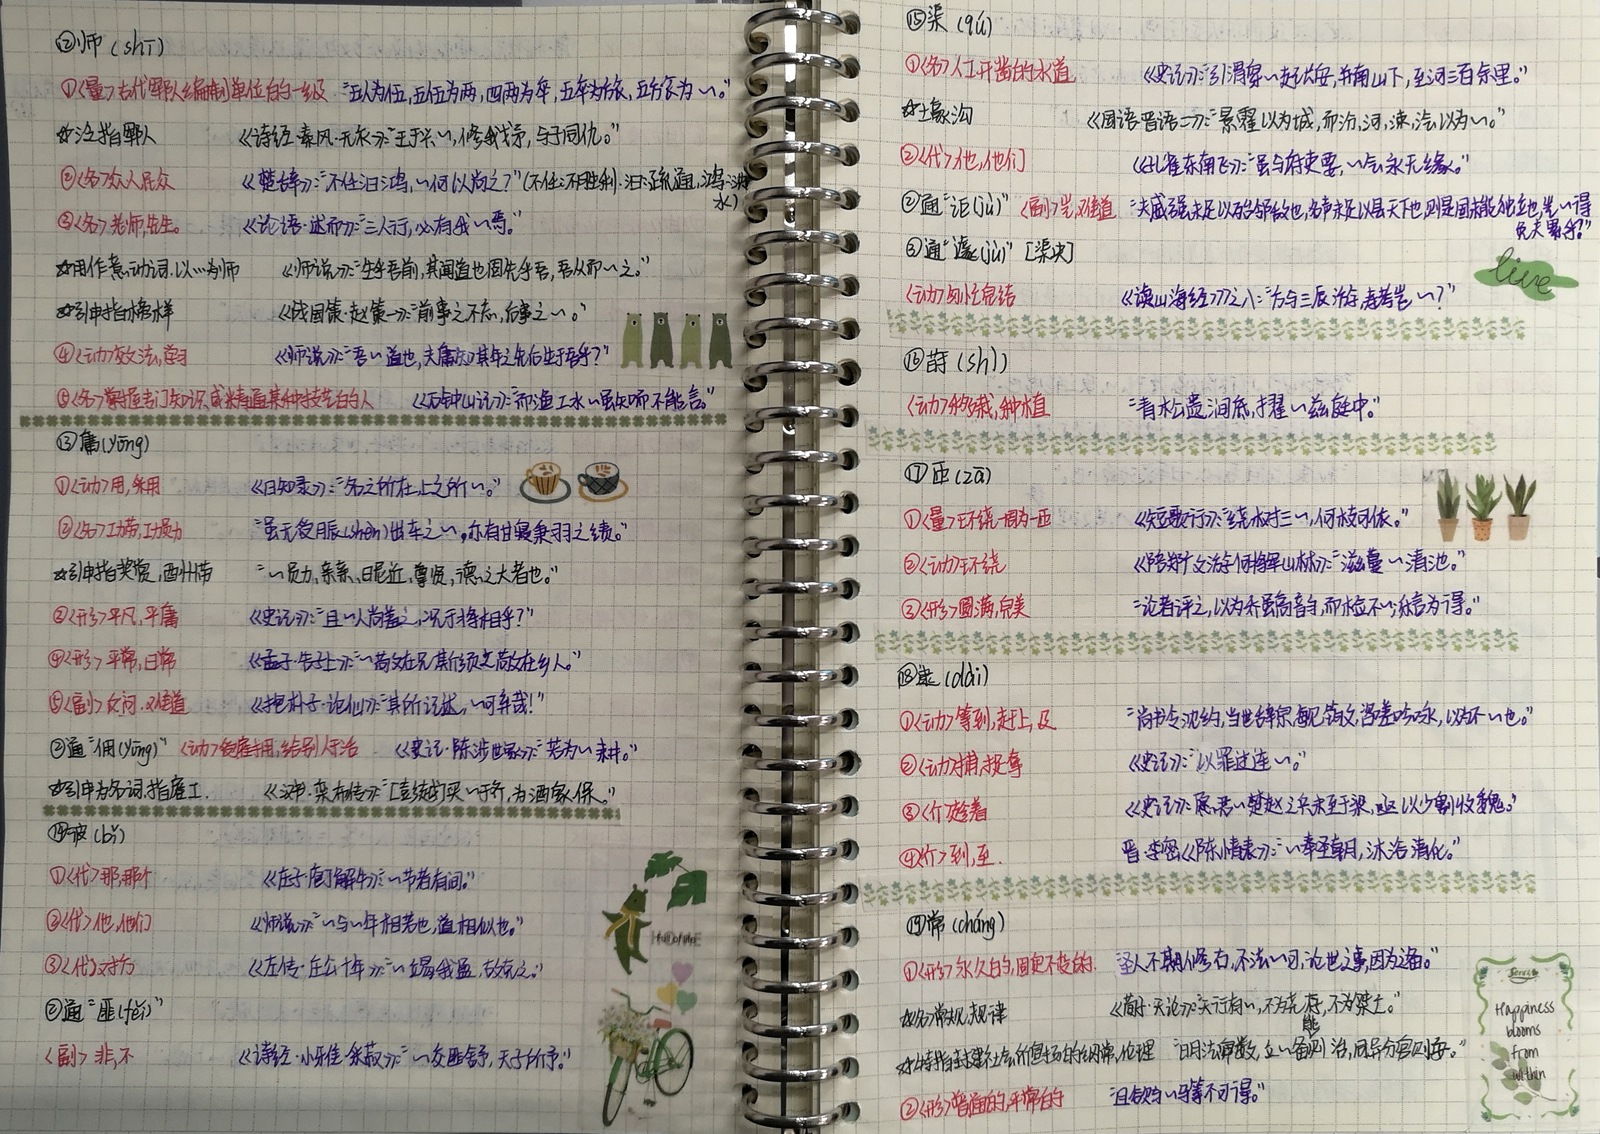 ⑫师(shī)
①<量>古代军队编制单位的一级 "五人为伍,五伍为两,四两为卒,五卒为旅,五旅为～。"
☆泛指军队 《诗经·秦风·无衣》:"王于兴～,修我戈矛,与子同仇。"
②<名>众人,民众 《楚辞》:"不任汩鸿,～何以尚之?"(不任:不胜利.汩:疏通,鸿:洪水)
③<名>老师,先生。 《论语·述而》:"三人行,必有我～焉。"
☆用作意动词.以…为师 《师说》:"生乎吾前,其闻道也固先乎吾,吾从而～之。"
☆引申指榜样 《战国策·赵策一》:"前事之不忘,后事之～。"
④<动>效法,学习 《师说》:"吾～道也,夫庸知其年之先后生于吾乎?"
⑤<名>掌握专门知识或精通某种技艺的人 《石钟山记》:"而渔工水～虽知而不能言。"
⑬庸(yōng)
①<动>用,采用 《日知录》:"名之所在,上之所～。"
②<名>功劳,功勋 "虽无受脤(shèn)出车之～,亦有甘寝秉羽之绩。"
☆引申指奖赏,酬劳 "～勋,亲亲,昵近,尊贤,德之大者也。"
③<形>平凡,平庸 《史记》:"且～人尚羞之,况于将相乎?"
④<形>平常,日常 《孟子·告子上》:"～敬在兄,斯须之敬在乡人。"
⑤<副>反问.难道 《抱朴子·论仙》:"其所记述,～可弃哉!"
②通"佣(yōng)" <动>雇用,给别人干活 《史记·陈涉世家》:"若为～耕。"
☆引申为名词.指雇工. 《汉书·栾布传》:"[彭越]买～于齐,为酒家保。"
⑭彼(bǐ)
①<代>那,那个 《庄子·庖丁解牛》:"～节者有间。"
②<代>他,他们 《师说》:"～与～年相若也,道相似也。"
③<代>对方 《左传·庄公十年》:"～竭我盈,故克之。"
②通"匪(fěi)"
<副>非,不 《诗经·小雅·采菽》:"～交匪舒,天子所予。"
⑮渠(qú)
①<名>人工开凿的水道 《史记》:"引渭穿～起长安,并南山下,至河三百余里。"
☆壕沟 《国语·晋语二》:"景霍以为城,而汾,河,涑,浍以为～。"
②<代>他,他们 《孔雀东南飞》:"虽与府吏要,～会永无缘。"
②通"讵(jù)" <副>岂,难道 "夫威强未足以殆邻敌也,名声未足以县天下也,则是国未能独立也,岂～得免夫累乎?"
③通"遽(jù)" [渠央]
<动>匆忙完结 《读山海经》之八:"方与三辰游,寿考岂～?"
live
⑯莳(shì)
<动>移栽,种植 "青松出涧底,擢～兹庭中。"
⑰匝(zā)
①<量>环绕一周为一匝 《短歌行》:"绕树三～,何枝可依。"
②<动>环绕 "滋蔓～清池。"
③<形>圆满,完美 "论者评之,以为乔虽高音,而检不～,然言为得。"
⑱逮(dài)
①<动>等到,赶上,及 "尚书令沈约,当世辞宗,每见筠文,咨嗟吟咏,以为不～也。"
②<动>捕,捉拿 《史记》:"以罪过连～。"
③<介>趁着 《史记》:"愿君～楚赵之兵未至于梁,亟以少割收魏。"
④<介>到,至. 晋·李密《陈情表》:"～奉圣朝,沐浴清化。"
⑲常(cháng)
①<形>永久的,固定不变的. "圣人不期修古,不法～可,论世之事,因为之备。"
☆<名>常规,规律 《荀子·天论》:"天行有～,不为尧存,不为桀亡。"
②<形>普通的,平常的 "且欲与～马等不可得。"
Happiness
blooms
from
within